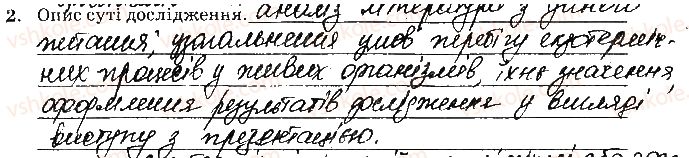 2. Опис суті дослідження. аналіз літератури з даного
питання, узагальнення умов перебігу екзотерміч-
них процесів у живих організмів, їхнє значення,
оформлення результатів дослідження у вигляді
виступу з презентацією.